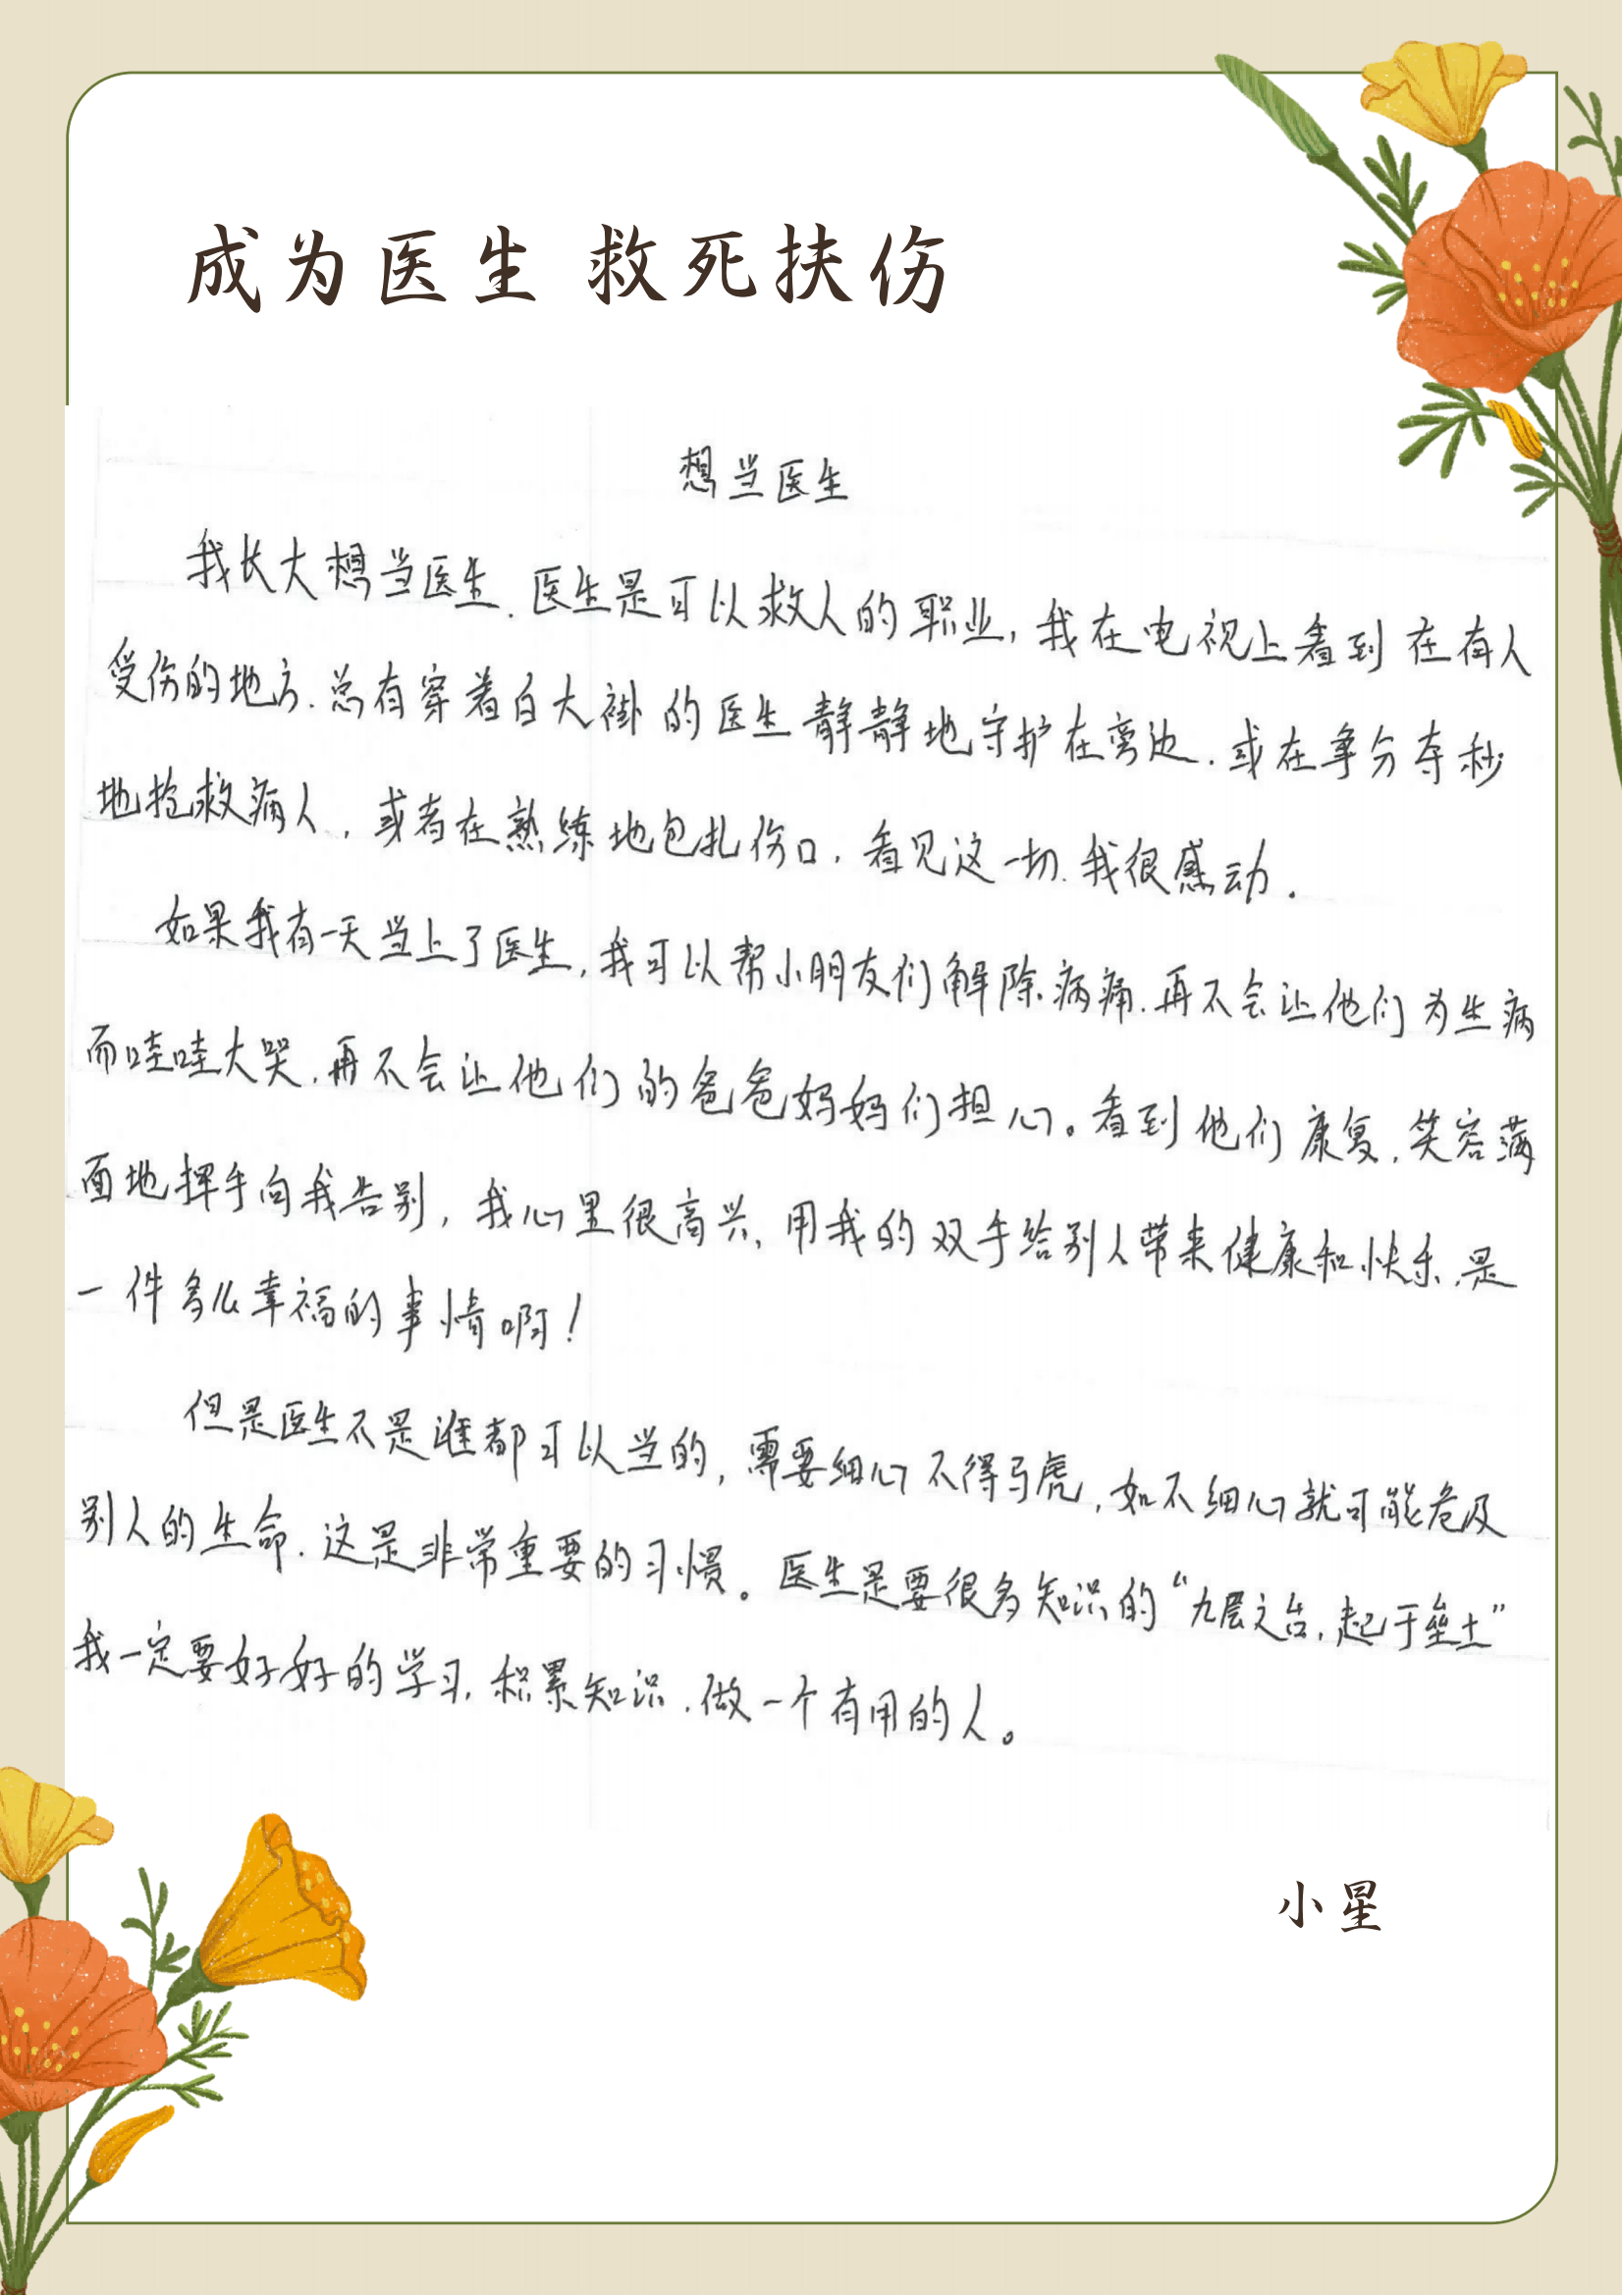 成为医生 救死扶伤
想当医生
我长大想当医生.医生是可以救人的职业,我在电视上看到在有人
受伤的地方.总有穿着白大褂的医生静静地守护在旁边.或在争分夺秒
地抢救病人,或者在熟练地包扎伤口,看见这一切.我很感动.
如果我有一天当上了医生,我可以帮小朋友们解除病痛.再不会让他们为生病
而哇哇大哭.再不会让他们的爸爸妈妈们担心。看到他们康复,笑容满
面地挥手向我告别,我心里很高兴,用我的双手给别人带来健康和快乐,是
一件多么幸福的事情啊!
但是医生不是谁都可以当的,需要细心不得马虎,如不细心就可能危及
别人的生命.这是非常重要的习惯。医生是要很多知识的“九层之台,起于垒土”
我一定要好好的学习,积累知识.做一个有用的人。
小星